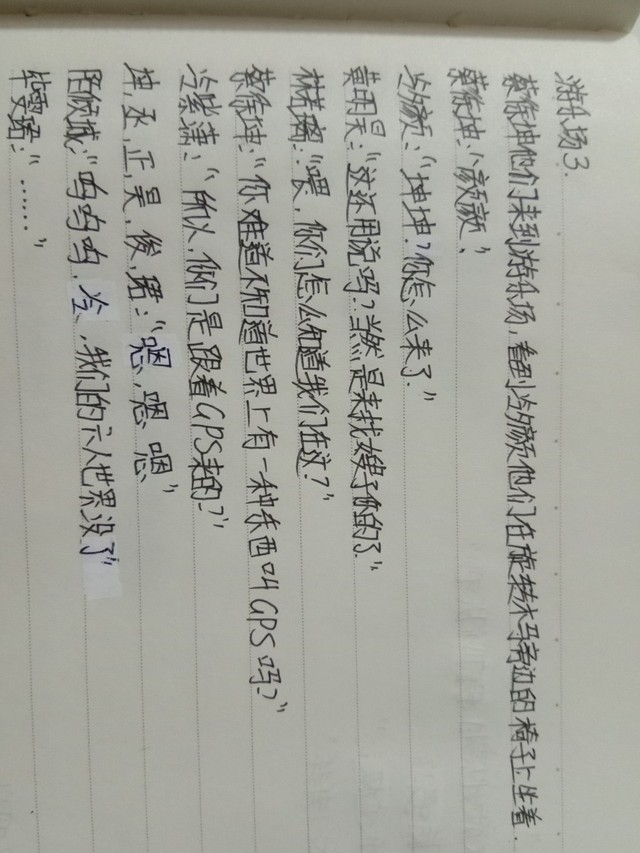 游乐场3.
蔡徐坤他们来到游乐场,看到冷颜他们在旋转木马旁边的椅子上坐着.
蔡徐坤:"颜颜"
冷颜:"坤坤?你怎么来了."
黄明昊:"这还用说吗?当然是来找嫂子你的了."
林 璃:"喂,你们怎么知道我们在这?"
蔡徐坤:"你难道不知道世界上有一种东西叫GPS吗?"
冷紫 :"所以,你们是跟着GPS来的?"
坤,丞,正,昊,俊,珺:"嗯,嗯,嗯"
陌倾城:"呜呜呜,冷,我们的六人世界没了"
毕雯珺:"……"